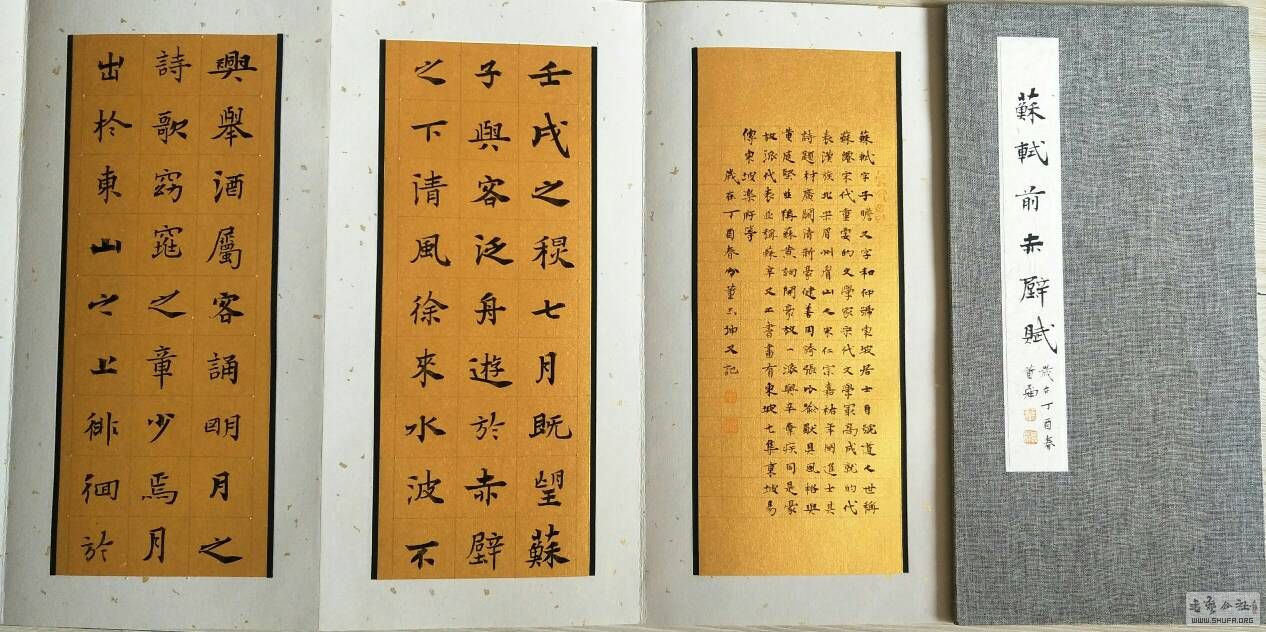 蘇軾前赤壁賦
歲在丁酉春
蘇軾字子瞻又字和仲號東坡居士自號道人世稱
蘇僊宋代重要的文學家宋代文學最高成就的代
表漢族北宋眉州眉山人宋仁宗嘉祐年間進士其
詩題材廣闊清新豪健善用誇張比喻獨具風格與
黄庭堅並稱蘇黄詞開豪放一派與辛棄疾同是豪
放派代表並稱蘇辛又工書畫有東坡七集東坡易
傳東坡樂府等
歲在丁酉春分董玉坤又記
壬戌之秋七月既望蘇
子與客泛舟遊於赤壁
之下清風徐來水波不
興舉酒屬客誦明月之
詩歌窈窕之章少焉月
出於東山之上徘徊於
WWW.SHUFA.ORG